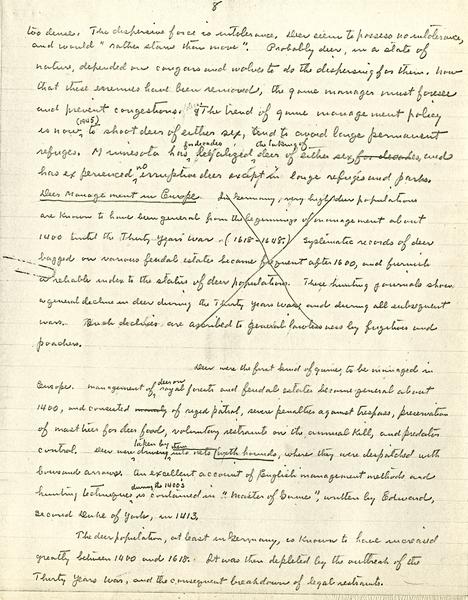 8
too dense. The dispersive force is intolerance. Deer seem to possess no intolerance,
and would "rather starve than move". Probably deer, in a state of
nature, depended on cougars and wolves to do the dispersing for them. Now
that these enemies have been removed, the game manager must foresee
and prevent congestions. The trend of game management policy
is now (1945) to shoot deer of either sex, and to avoid large permanent
refuges. Minnesota has for decades legalized the taking of deer of either sex for decades, and
has experienced no irruptive deer except in large refuges and parks.
Deer Management in Europe. In Germany, very high deer populations
are known to have been general from the beginnings of management about
1400 until the Thirty Years War (1618-1648). Systematic records of deer
bagged on various feudal estates became frequent after 1600, and furnish
a reliable index to the status of deer populations. These hunting journals show
a general decline in deer during the Thirty Years War, and during all subsequent
wars. Such declines are ascribed to general lawlessness by fugitives and
poachers.
Deer were the first kind of game to be managed in
Europe. Management of deer on royal forests and feudal estates became general about
1400, and consisted mainly of rigid patrol, severe penalties against trespass, preservation
of mast trees for deer food, voluntary restraints on the annual kill, and predator
control. Deer were taken by driving them into nets with hounds, where they were despatched with
bows and arrows. An excellent account of English management methods and
hunting techniques during the 1400's is contained in "Master of Game", written by Edward,
Second Duke of York, in 1413.
The deer population, at least in Germany, is known to have increased
greatly between 1400 and 1618. It was then depleted by the outbreak of the
Thirty Years War, and the consequent breakdown of legal restraints.